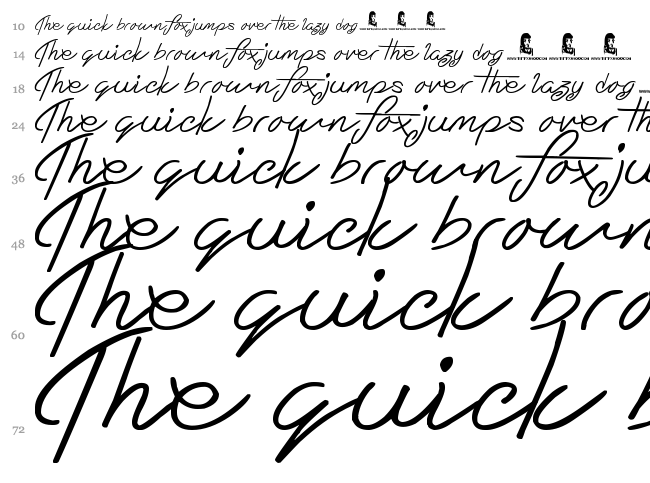 10 The quick brown fox jumps over the lazy dog
14 The quick brown fox jumps over the lazy dog
18 The quick brown fox jumps over the lazy dog
24 The quick brown fox jumps over th
36 The quick brown fox ju
48 The quick brown
60 The quick bro
72 The quick b